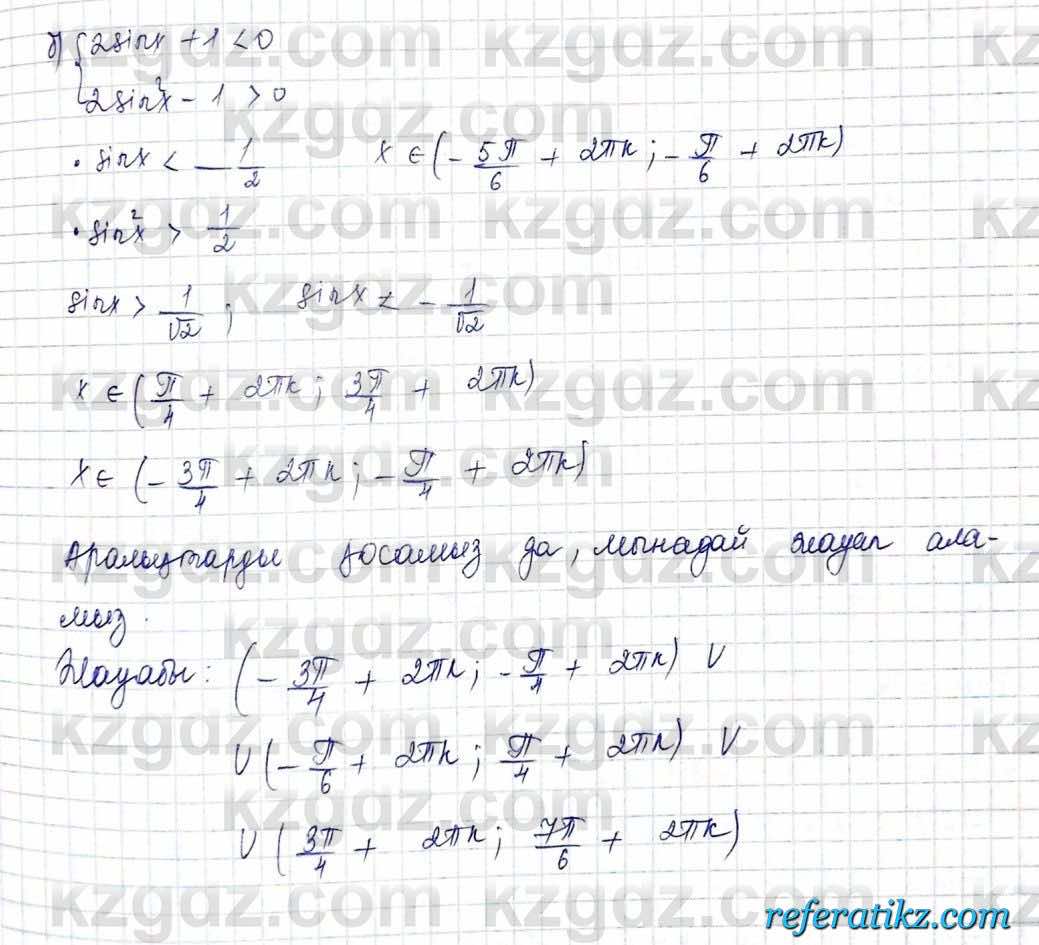 б) { 2sinx + 1 < 0
2sin²x - 1 > 0
• sinx < - 1/2    x ∈ (- 5π/6 + 2πk ; - π/6 + 2πk)
• sin²x > 1/2
sinx > 1/√2 ;    sinx < - 1/√2
x ∈ (π/4 + 2πk ; 3π/4 + 2πk)
x ∈ (- 3π/4 + 2πk ; - π/4 + 2πk)
Аралықтарды қосамыз да, мынадай жауап ала-
мыз.
Жауабы: (- 3π/4 + 2πk ; - π/4 + 2πk) ∪
∪ (- π/6 + 2πk ; π/4 + 2πk) ∪
∪ (3π/4 + 2πk ; 7π/6 + 2πk)
kzgdz.com
referatikz.com